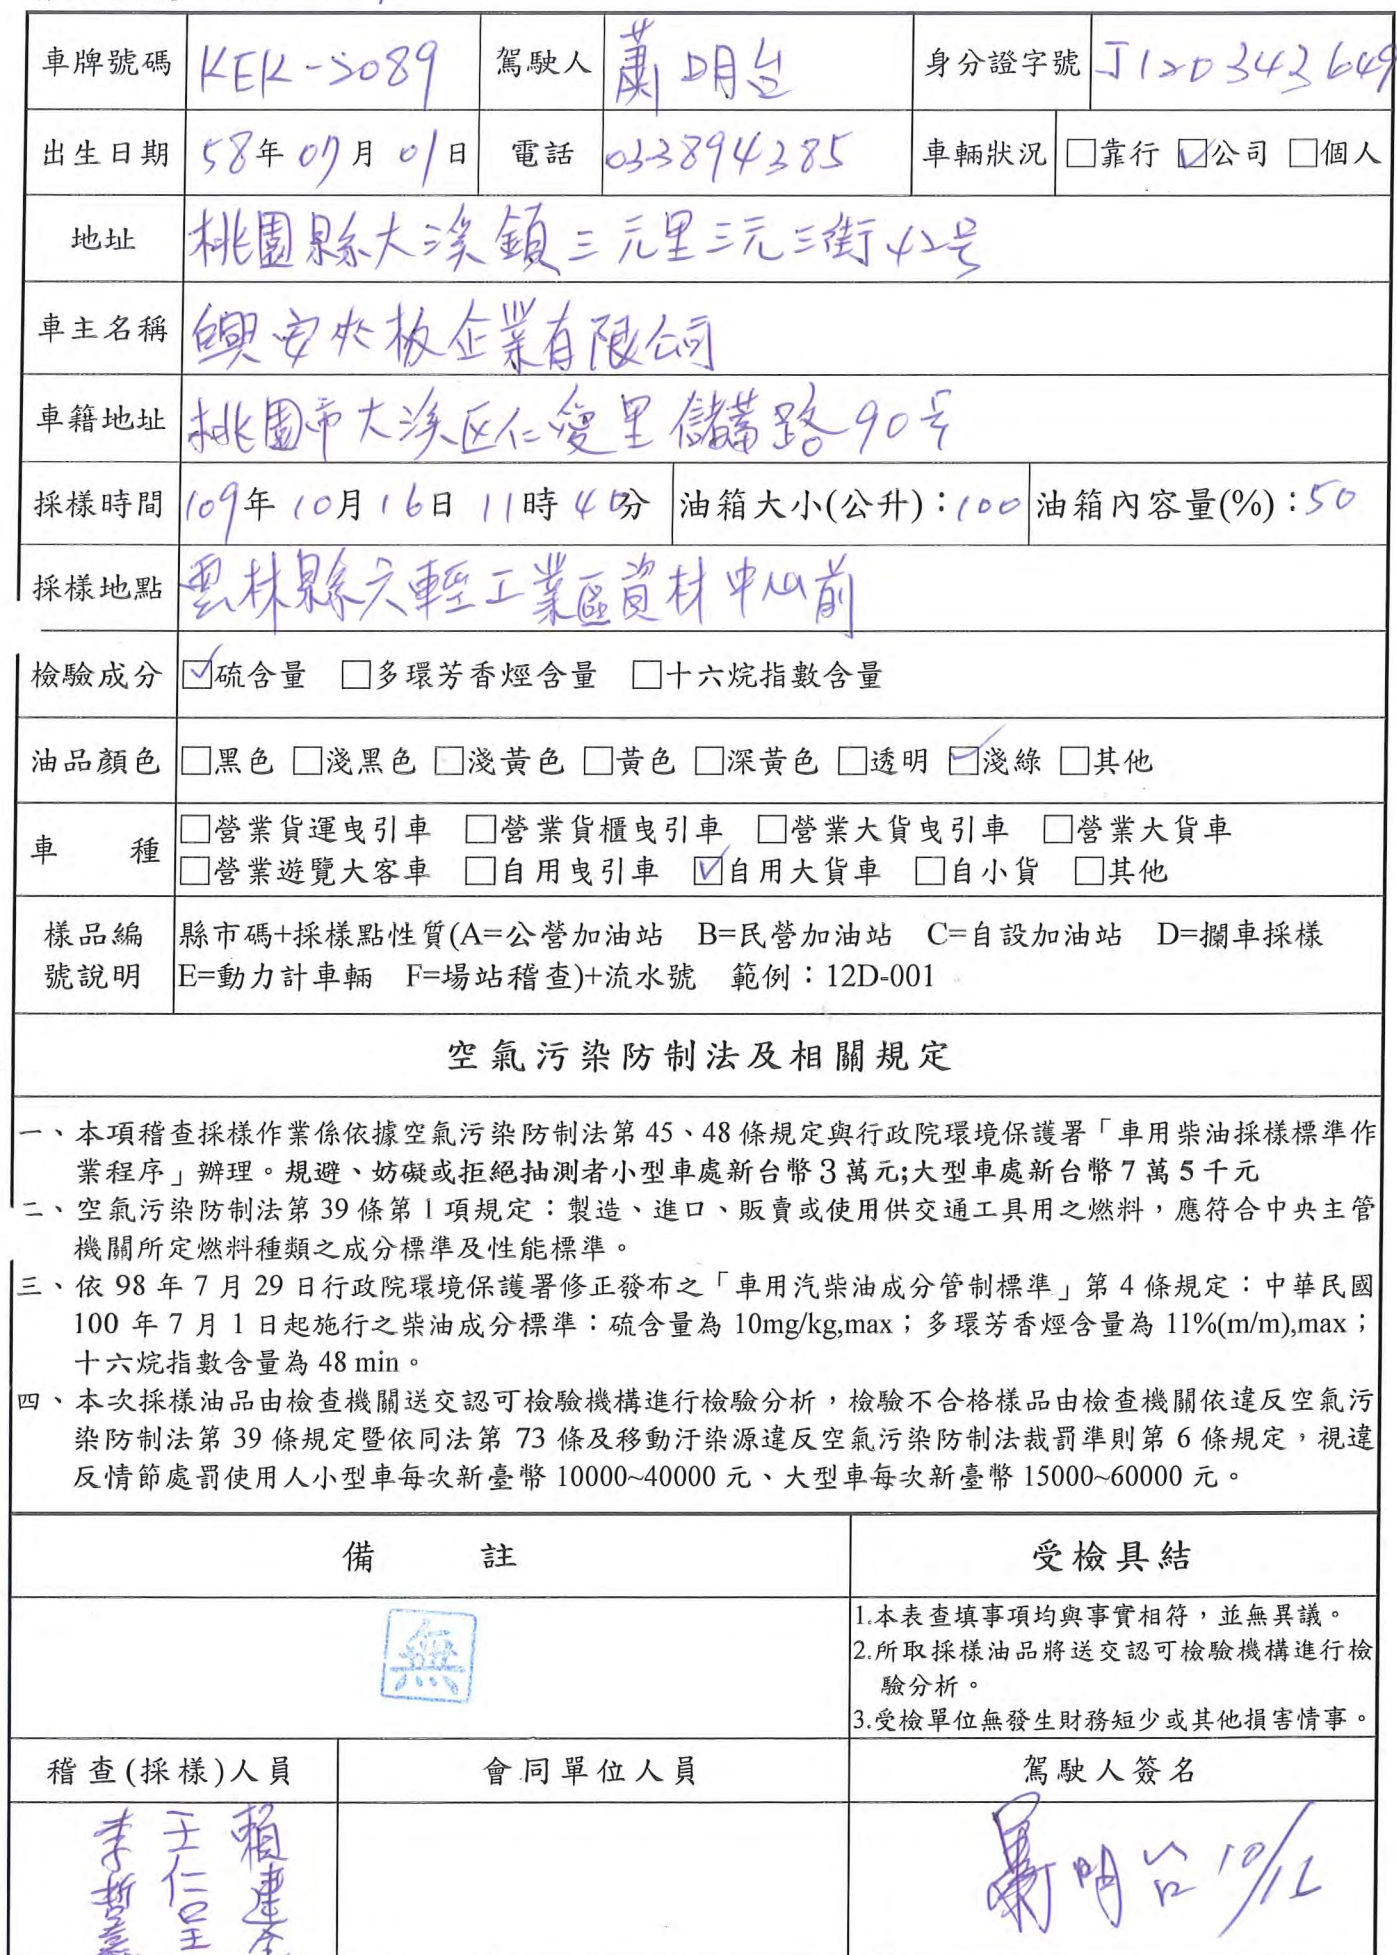 車牌號碼 KEK-5089 駕駛人 蕭明台 身分證字號 J120343649
出生日期 58年07月01日 電話 033894385 車輛狀況 □靠行 ☑公司 □個人
地址 桃園縣大溪鎮三元里三元三街42号
車主名稱 興安夾板企業有限公司
車籍地址 桃園市大溪区仁愛里儲蓄路90号
採樣時間 109年10月16日11時40分 油箱大小(公升):100 油箱內容量(%):50
採樣地點 雲林縣六輕工業區資材中心前
檢驗成分 ☑硫含量 □多環芳香烴含量 □十六烷指數含量
油品顏色 □黑色 □淺黑色 □淺黃色 □黃色 □深黃色 □透明 ☑淺綠 □其他
車種 □營業貨運曳引車 □營業貨櫃曳引車 □營業大貨曳引車 □營業大貨車
□營業遊覽大客車 □自用曳引車 ☑自用大貨車 □自小貨 □其他
樣品編 縣市碼+採樣點性質(A=公營加油站 B=民營加油站 C=自設加油站 D=攔車採樣
號說明 E=動力計車輛 F=場站稽查)+流水號 範例：12D-001
空氣污染防制法及相關規定
一、本項稽查採樣作業係依據空氣污染防制法第 45、48 條規定與行政院環境保護署「車用柴油採樣標準作
業程序」辦理。規避、妨礙或拒絕抽測者小型車處新台幣3萬元;大型車處新台幣7萬5千元
二、空氣污染防制法第 39 條第 1 項規定：製造、進口、販賣或使用供交通工具用之燃料，應符合中央主管
機關所定燃料種類之成分標準及性能標準。
三、依 98 年 7 月 29 日行政院環境保護署修正發布之「車用汽柴油成分管制標準」第 4 條規定：中華民國
100 年 7 月 1 日起施行之柴油成分標準：硫含量為 10mg/kg,max；多環芳香烴含量為 11%(m/m),max；
十六烷指數含量為 48 min。
四、本次採樣油品由檢查機關送交認可檢驗機構進行檢驗分析，檢驗不合格樣品由檢查機關依違反空氣污
染防制法第 39 條規定暨依同法第 73 條及移動汙染源違反空氣污染防制法裁罰準則第 6 條規定，視違
反情節處罰使用人小型車每次新臺幣 10000~40000 元、大型車每次新臺幣 15000~60000 元。
備註 受檢具結
無
1.本表查填事項均與事實相符，並無異議。
2.所取採樣油品將送交認可檢驗機構進行檢
驗分析。
3.受檢單位無發生財務短少或其他損害情事。
稽查(採樣)人員 會同單位人員 駕駛人簽名
賴建
王仁呈
李哲
蕭明台 10/16